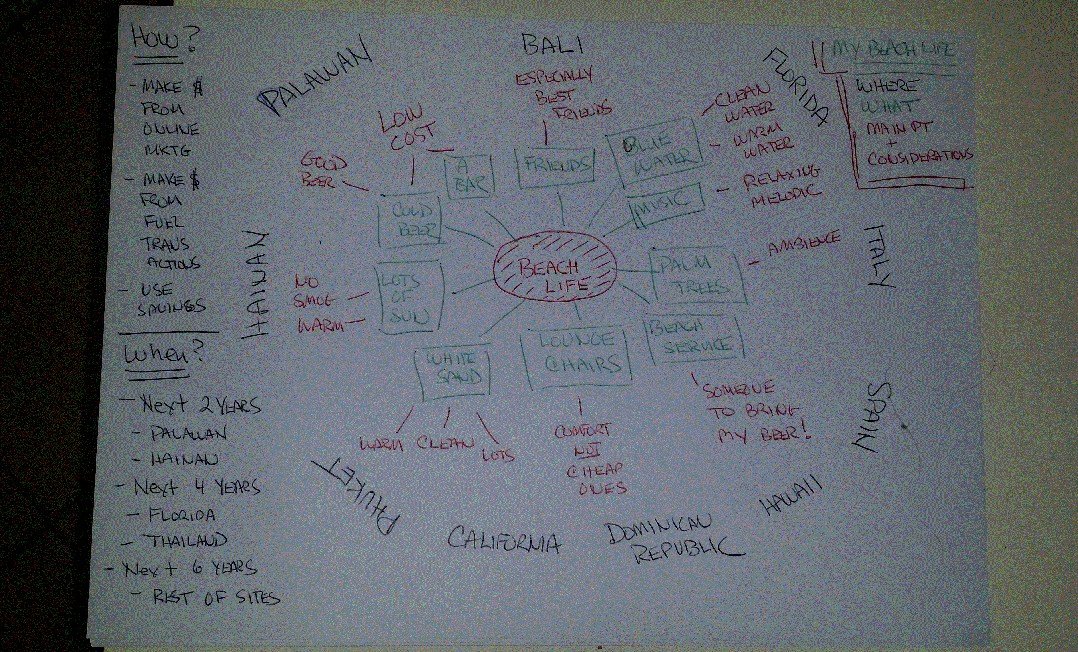 How?
- MAKE $
FROM
ONLINE
MKTG
- MAKE $
FROM
FUEL
TRANS
ACTIONS
- USE
SAVINGS
When?
- Next 2 YEARS
- PALAWAN
- HAINAN
- Next 4 YEARS
- FLORIDA
- THAILAND
- Next 6 YEARS
- REST OF SITES
PALAWAN
BALI
FLORIDA
ITALY
SPAIN
HAWAII
DOMINICAN
REPUBLIC
CALIFORNIA
PHUKET
HAINAN
MY BEACH LIFE
WHERE
WHAT
MAIN PT
+
CONSIDERATIONS
BEACH
LIFE
FRIENDS
ESPECIALLY
BEST
FRIENDS
BLUE
WATER
- CLEAN
WATER
- WARM
WATER
MUSIC
- RELAXING
MELODIC
PALM
TREES
- AMBIENCE
BEACH
SERVICE
SOMEONE
TO BRING
MY BEER!
LOUNGE
CHAIRS
COMFORT
NOT
CHEAP
ONES
WHITE
SAND
WARM
CLEAN
LOTS
LOTS
OF
SUN
NO
SMOG
WARM
COLD
BEER
GOOD
BEER
LOW
COST
A
BAR